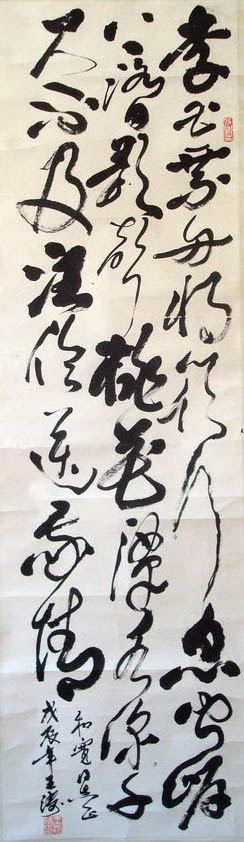 李白乘舟将欲行忽闻岸
上踏歌声桃花潭水深千
尺不及汪伦送我情
和宽正
戊辰年王涛